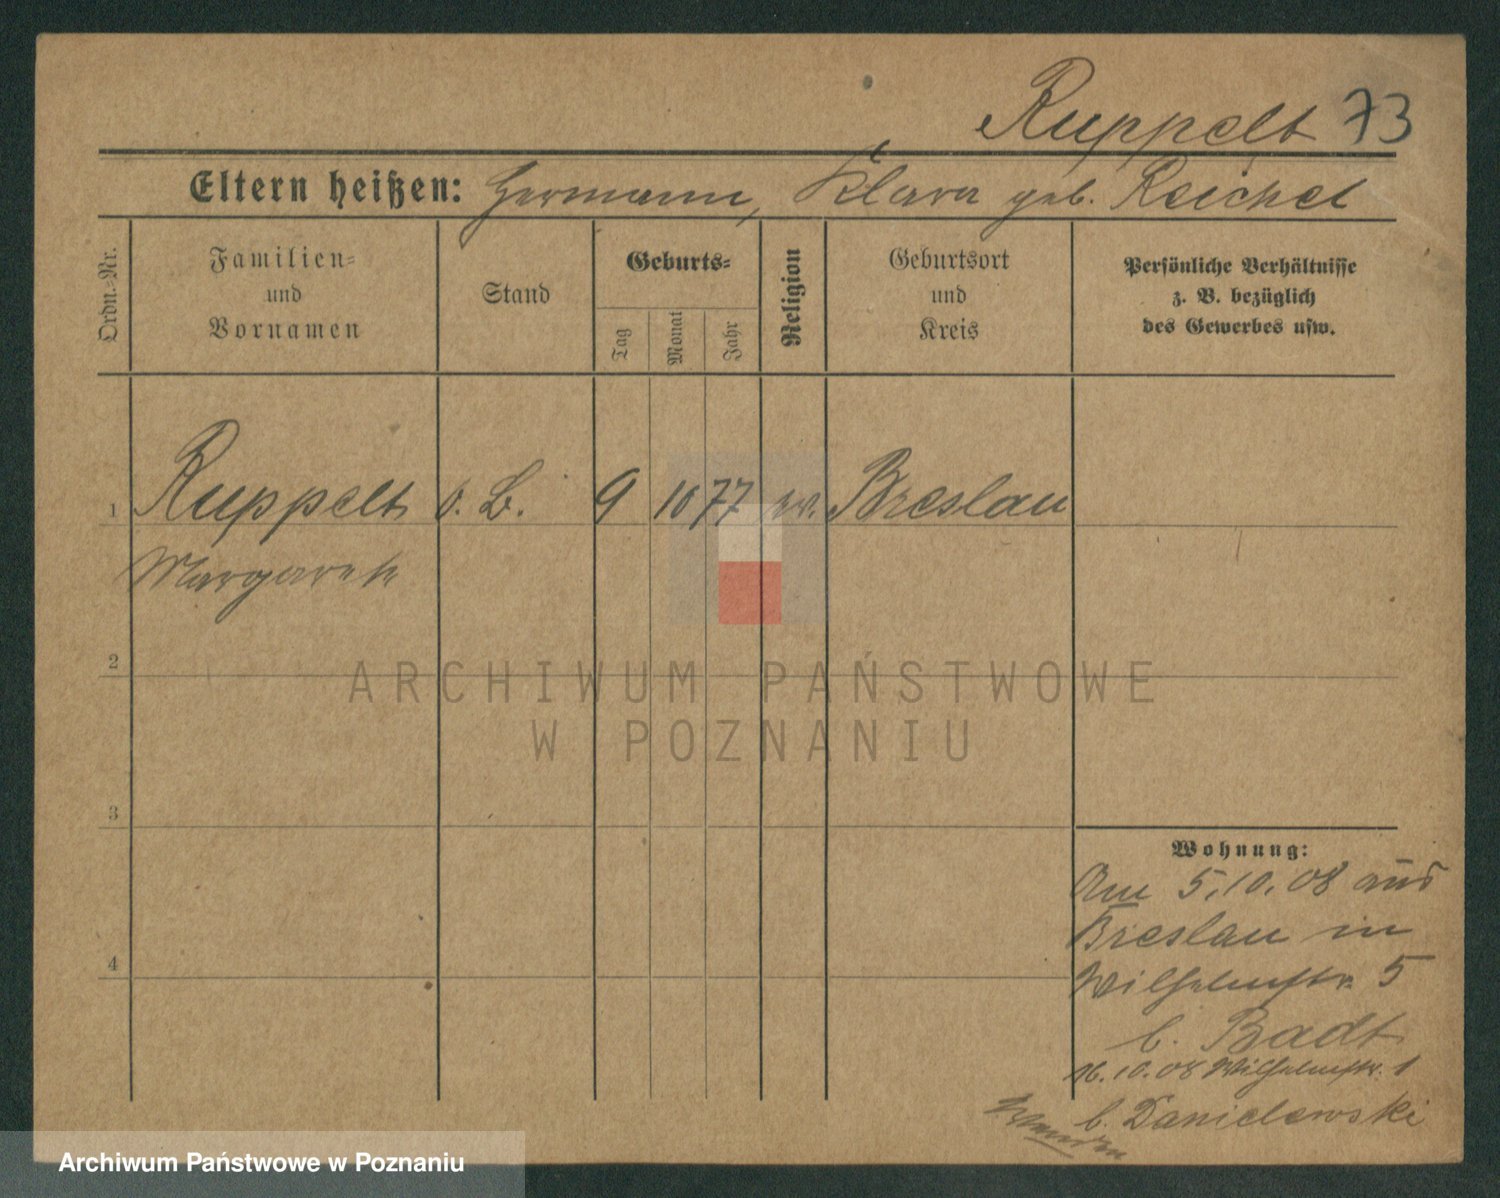 Ruppelt 73
Eltern heißen: Hermann, Klara geb. Reichel
Ordn.=Nr.
Familien=
und
Vornamen
Stand
Geburts=
Tag
Monat
Jahr
Religion
Geburtsort
und
Kreis
Persönliche Verhältnisse
z. B. bezüglich
des Gewerbes usw.
1 Ruppelt o. B. 9 10 77 Breslau
Margarete
2
3
4
Wohnung:
Am 5.10.08 aus
Breslau in
Wilhelmstr. 5
b. Badt
16.10.08 Wilhelmstr. 1
b. Danielewski
ARCHIWUM PAŃSTWOWE
W POZNANIU
Archiwum Państwowe w Poznaniu